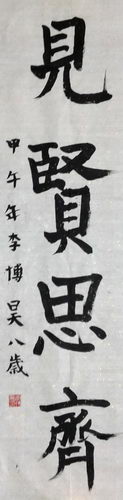 見賢思齊
甲午年李博昊八歲